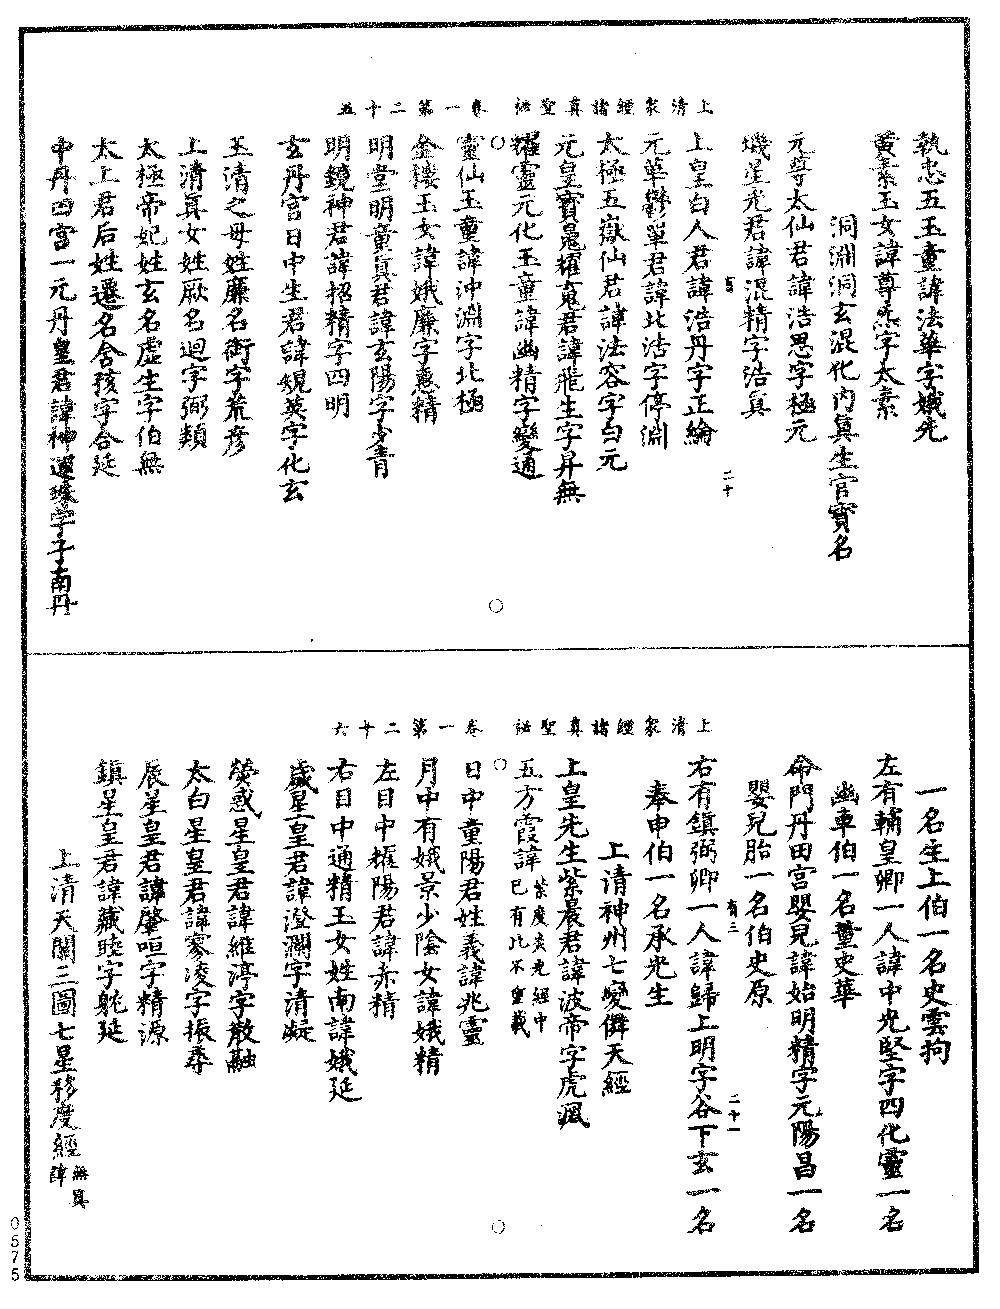 執忠五玉童諱法華字娥先
黃素玉女諱尊炁字太素
洞淵洞玄混化內真生官寶名
元尊太仙君諱浩思字極元
璣星光君諱混精字浩真
有
二十
上皇白人君諱浩丹字正綸
元華鬱單君諱北沽字停淵
太極五嶽仙君諱法容字白元
元皇寶晃耀寬君諱龍生字昇無
耀靈元化玉童諱幽精字變通
上清衆經諸真聖祕 卷一第二十五
靈仙玉童諱沖淵字北極
金樓玉女諱娥廉字惠精
明堂明童真君諱玄陽字少青
明鏡神君諱招精字四明
玄丹宮日中生君諱規英字化玄
玉清之母姓廉名銜字荒彥
上清真女姓厥名迴字弼類
太極帝妃姓玄名虛生字伯無
太上君后姓遷名含孩字合延
中丹四宮一元丹皇君諱神運珠字子南丹
一名生上伯一名史雲拘
左有輔皇卿一人諱中光堅字四化靈一名
幽車伯一名董史華
命門丹田宮嬰兒諱始明精字元陽昌一名
嬰兒胎一名伯史原
有三
二十一
右有鎮弼卿一人諱歸上明字谷下玄一名
奉申伯一名承光生
上清神州七變儛天經
上皇先生紫晨君諱波帝字虎渢
五方霞諱 紫度炎光經中已有此不重載
上清衆經諸真聖祕 卷一第二十六
日中童陽君姓義諱兆靈
月中有娥景少陰女諱娥精
左目中耀陽君諱赤精
右目中通精玉女姓南諱娥延
歲星皇君諱澄瀾字清凝
熒惑星皇君諱維渟字散融
太白星皇君諱寥凌字振尋
辰星皇君諱肇咺字精源
鎮星皇君諱藏睦字躭延
上清天關三圖七星移度經 無真諱
0675